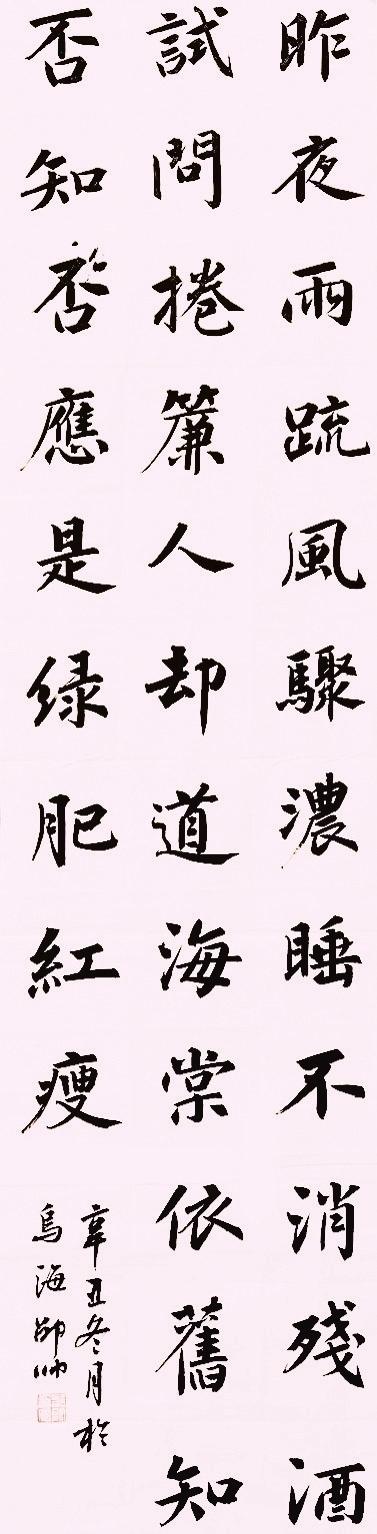 昨夜雨疏風驟濃睡不消殘酒
試問捲簾人却道海棠依舊知
否知否應是緑肥紅瘦
辛丑冬月於
烏海邵帅